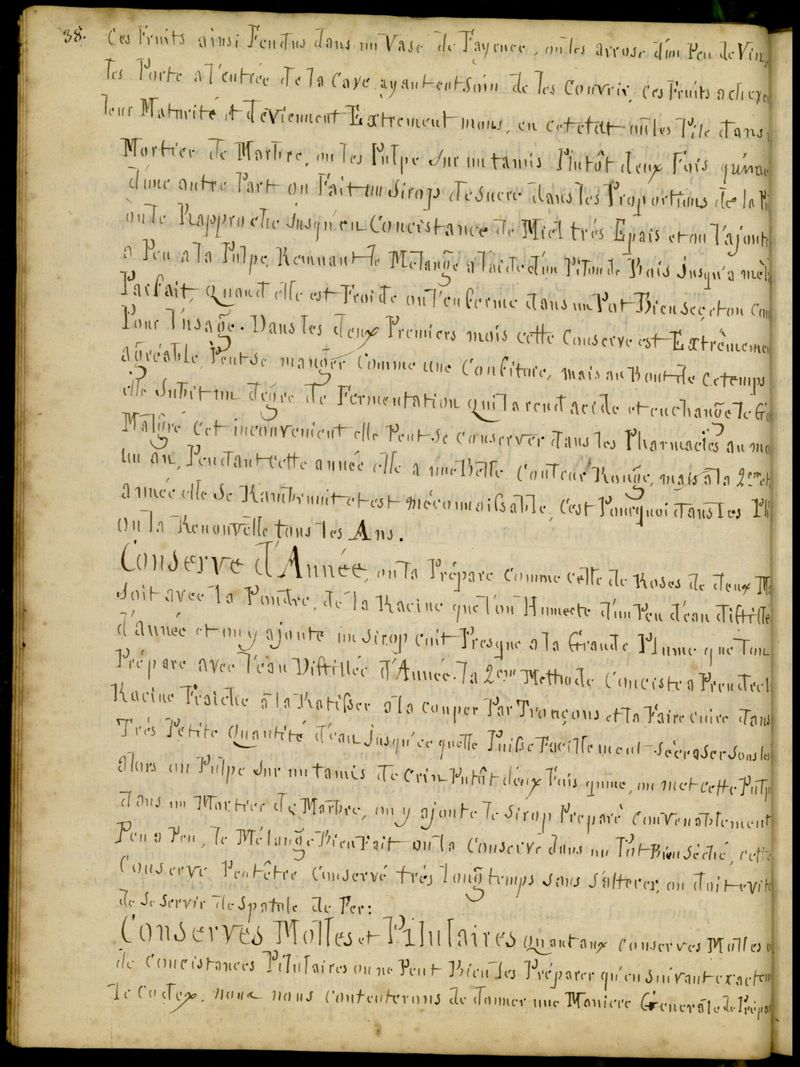 38. Ces Fruits ainsi Fendus dans un Vase de Fayence, on les arrose d'un Peu de Vin,
les Porte a l'entrée de la Cave ayant soin de les Couvrir, ces Fruits acheve
leur Maturité et déviennent Extrement mous, en cet etat on les Pile dans
Mortier de Marbre, on les Pulpe sur un tamis Plutôt deux Fois qu'une
d'une autre Part on Fait un Sirop de sucre dans les Proportions de la
on le Rapproche Jusqu'en Concistance de Miel trés Epais et on l'ajout
a Peu a la Pulpe, Remuant le Mélange a l'aide d'un Pilon de Bois Jusqu'a mêl
Parfait, Quand elle est Froide on l'enferme dans un Pot Bien Sec et on
Pour l'usage. Dans les deux Premiers mois cette Conserve est Extrêmemen
agréable, Peut se manger Comme une Confiture, mais au Bout de ce temps
elle Subit un dégré de Fermentation qui la rend acide et en change le
Malgré cet inconvenient elle Peut se conserver dans les Pharmacies au mo
un an, Pendant cette année elle a une Belle Couleur Rouge, mais a la 2eme et
année elle se Rambrunit et est méconnoissable, C'est Pourquoi dans les
On la Renouvelle tous les Ans.
Conserve d'Année, on la Prépare comme celle de Roses de deux
soit avec la Poudre, de la Racine que l'on Humecte d'un Peu d'eau distillé
d'Année et on y ajoute un sirop cuit Presque a la Grande Plume que l'on
Prépare avec l'eau Distillée d'Année. la 2eme Methode Conciste a Prendre l
Racine Fraiche a la Ratisser a la couper Par Tronçons et la Faire cuire dans
Trés Petite Quantité d'eau Jusqu'ce quelle Puisse Facillement Sécraser sous les
alors on Pulpe sur un tamis de crin Putôt deux Fois qu'une, on met cette Pulp
dans un Mortier de Marbre, on y ajoute le Sirop Preparé Convenablement
Peu a Peu, le Mélange Bien Fait on la Conserve dans un Pot Bien Séché, cette
Conserve Peut être Conservé trés longtemps sans s'alterer, on doit evite
de se servir de Spatule de Fer:
Conserves Molles et Pilulaires Quant aux conserves Molles
de Concistances Pilulaires on ne Peut Bien les Préparer qu'en suivant exactem
le Codex. nous nous contenterons de donner une Maniere Generale de Prépar